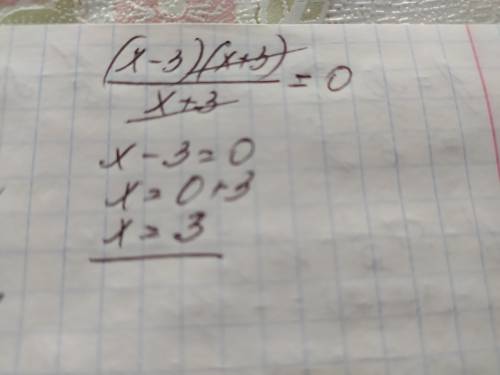 (x-3)(x+3)
x+3 = 0
x-3=0
x=0+3
x=3